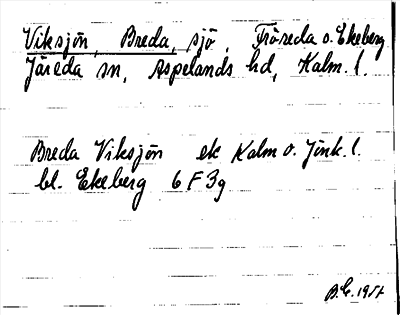 Viksjön, Breda, sjö, Fröreda o. Ekeberg
Järeda sn, Aspelands hd, Kalm. l.
Breda Viksjön ek Kalm o. Jönk. l.
bl. Ekeberg 6 F 3g